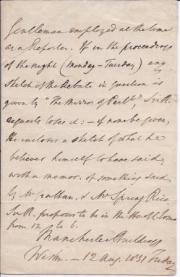 Gentleman employed at the time
as a Reporter. If in the proceedings
of the night (Monday-Tuesday) any
sketch of the Debate in question is
given by "The Mirror of Parlt"
requests to see it: - if none be given,
He encloses a sketch of what he
believes himself to have said,
with a memor. of something said
by Mr Grattan, & Mr Spring Rice
proposes to be in the House of Commons
from 12 to 6.
Manchester Buildings
Westm. - 12 Aug. 1831 Friday